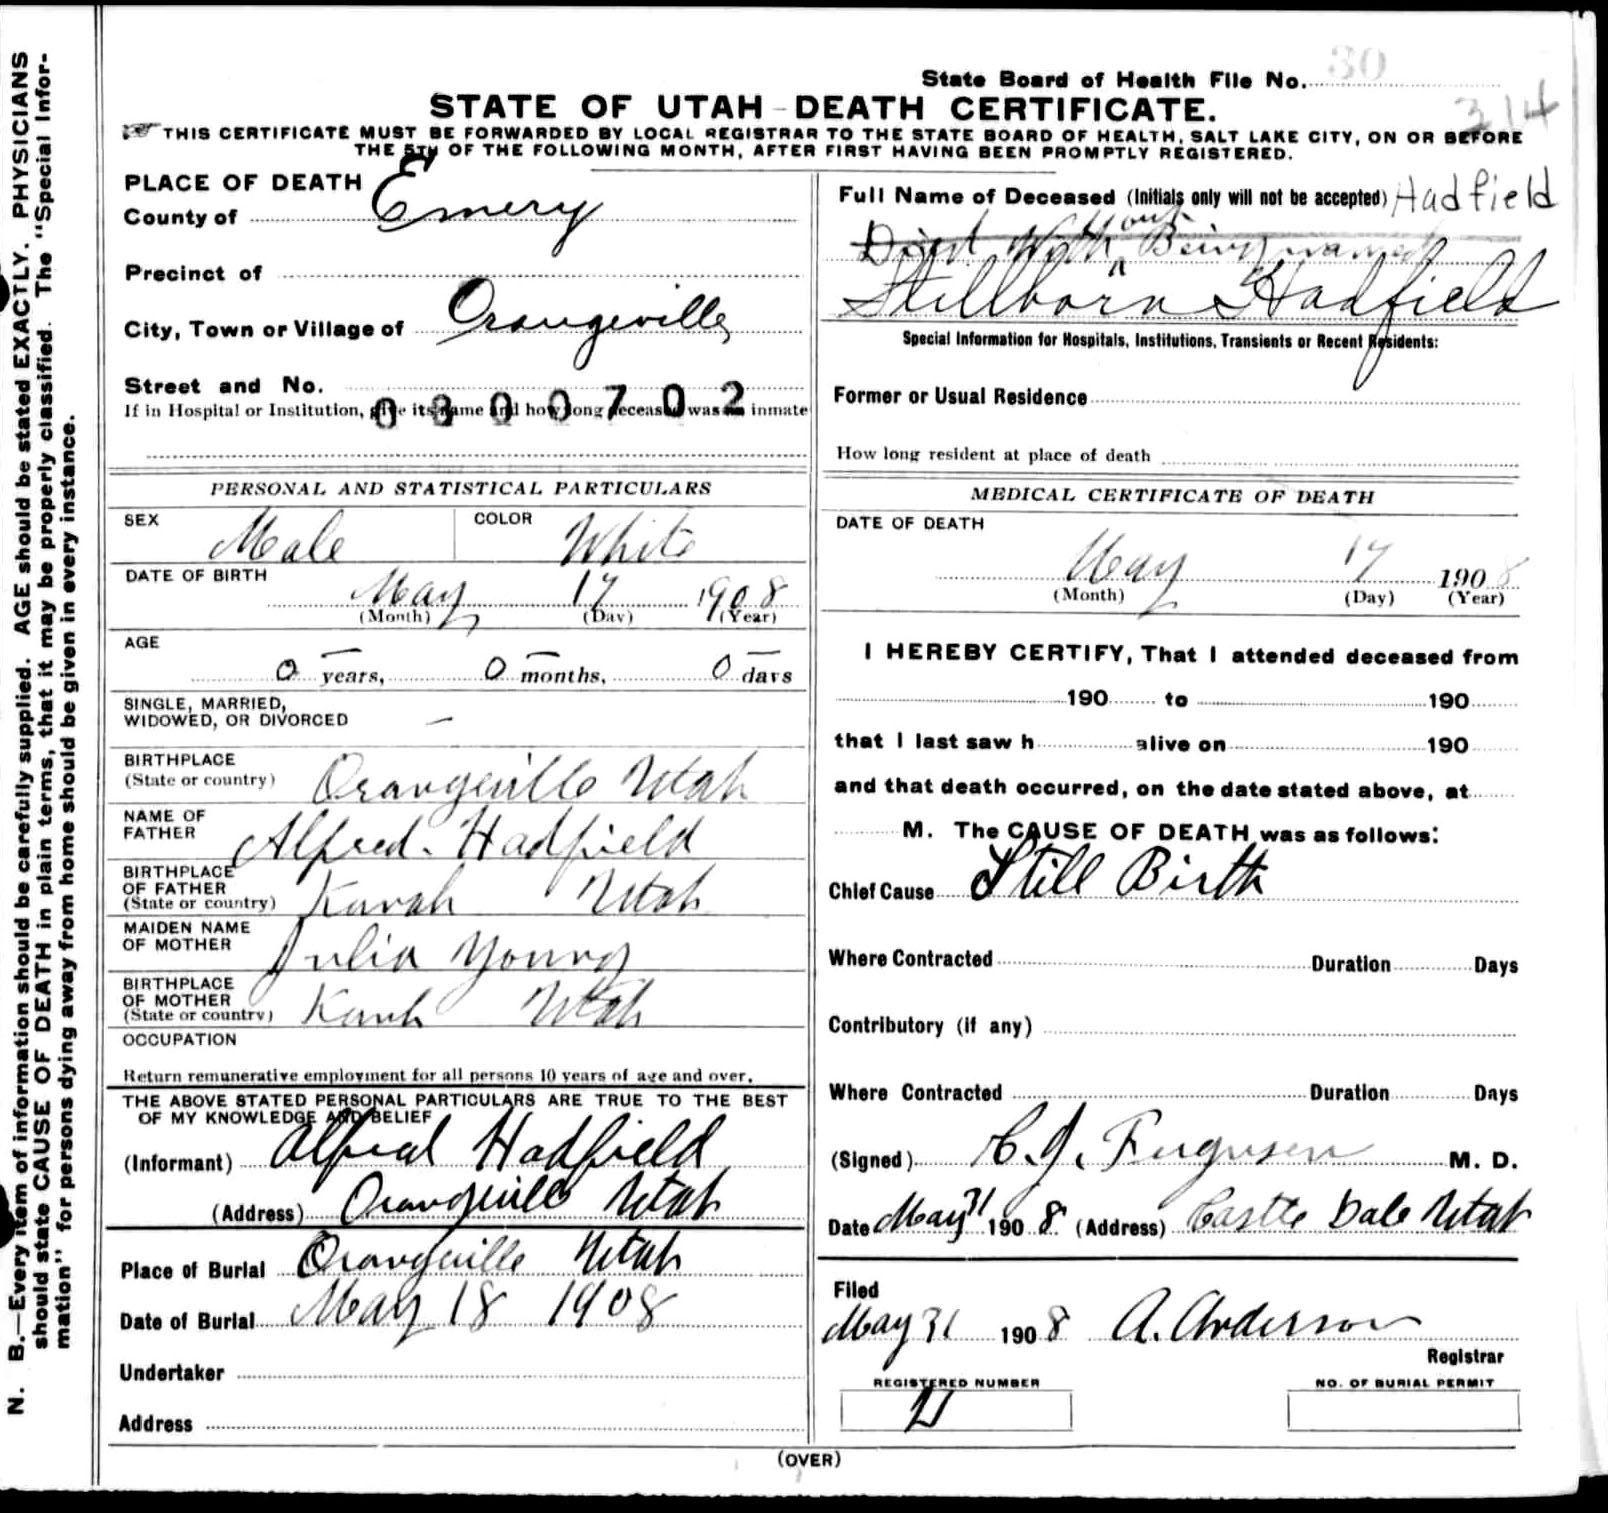 State Board of Health File No. 30
314
STATE OF UTAH - DEATH CERTIFICATE.
THIS CERTIFICATE MUST BE FORWARDED BY LOCAL REGISTRAR TO THE STATE BOARD OF HEALTH, SALT LAKE CITY, ON OR BEFORE
THE 5TH OF THE FOLLOWING MONTH, AFTER FIRST HAVING BEEN PROMPTLY REGISTERED.
N. B.—Every item of information should be carefully supplied. AGE should be stated EXACTLY. PHYSICIANS
should state CAUSE OF DEATH in plain terms, that it may be properly classified. The "Special Infor-
mation" for persons dying away from home should be given in every instance.
PLACE OF DEATH
County of Emery
Precinct of
City, Town or Village of Orangeville
Street and No.
If in Hospital or Institution, give its name and how long deceased was an inmate
0300702
PERSONAL AND STATISTICAL PARTICULARS
SEX Male COLOR White
DATE OF BIRTH
May 17 1908
(Month) (Day) (Year)
AGE
0 years, 0 months, 0 days
SINGLE, MARRIED,
WIDOWED, OR DIVORCED —
BIRTHPLACE
(State or country) Orangeville Utah
NAME OF
FATHER Alfred. Hadfield
BIRTHPLACE
OF FATHER
(State or country) Utah
MAIDEN NAME
OF MOTHER Julia Young
BIRTHPLACE
OF MOTHER
(State or country) Utah
OCCUPATION
Return remunerative employment for all persons 10 years of age and over.
THE ABOVE STATED PERSONAL PARTICULARS ARE TRUE TO THE BEST
OF MY KNOWLEDGE AND BELIEF
(Informant) Alfred Hadfield
(Address) Orangeville Utah
Place of Burial Orangeville Utah
Date of Burial May 18 1908
Undertaker
Address
Full Name of Deceased (Initials only will not be accepted) Hadfield
Died Without Being named
Stillborn Hadfield
Special Information for Hospitals, Institutions, Transients or Recent Residents:
Former or Usual Residence
How long resident at place of death
MEDICAL CERTIFICATE OF DEATH
DATE OF DEATH
May 17 1908
(Month) (Day) (Year)
I HEREBY CERTIFY, That I attended deceased from
190 to 190
that I last saw h alive on 190
and that death occurred, on the date stated above, at
M. The CAUSE OF DEATH was as follows:
Chief Cause Still Birth
Where Contracted Duration Days
Contributory (if any)
Where Contracted Duration Days
(Signed) Fergusen M. D.
Date May 31 1908 (Address) Castle Dale Utah
Filed
May 31 1908 A. Anderson
Registrar
REGISTERED NUMBER
NO. OF BURIAL PERMIT
(OVER)